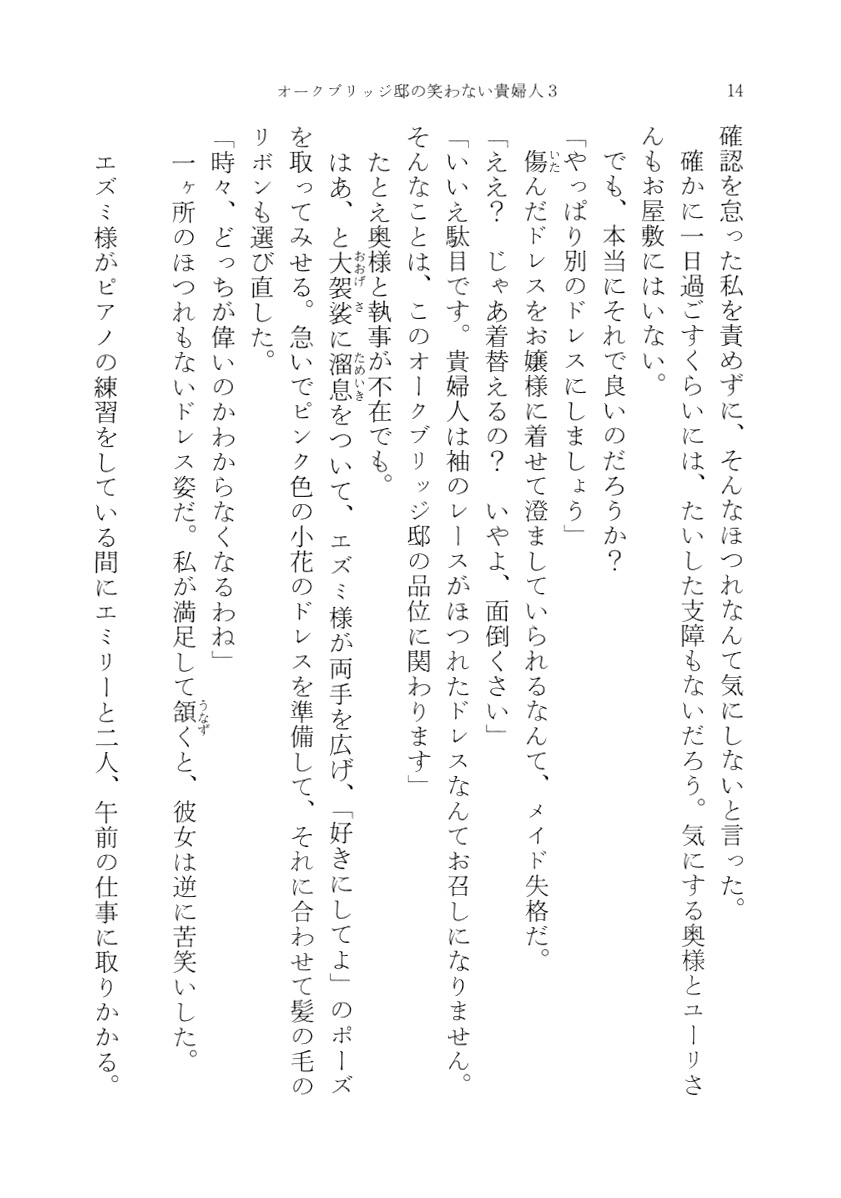 オークブリッジ邸の笑わない貴婦人3
14
確認を怠った私を責めずに、そんなほつれなんて気にしないと言った。
確かに一日過ごすくらいには、たいした支障もないだろう。気にする奥様とユーリさ
んもお屋敷にはいない。
でも、本当にそれで良いのだろうか?
「やっぱり別のドレスにしましょう」
傷んだドレスをお嬢様に着せて澄ましていられるなんて、メイド失格だ。
「ええ? じゃあ着替えるの? いやよ、面倒くさい」
「いいえ駄目です。貴婦人は袖のレースがほつれたドレスなんてお召しになりません。
そんなことは、このオークブリッジ邸の品位に関わります」
たとえ奥様と執事が不在でも。
はあ、と大袈裟に溜息をついて、エズミ様が両手を広げ、「好きにしてよ」のポーズ
を取ってみせる。急いでピンク色の小花のドレスを準備して、それに合わせて髪の毛の
リボンも選び直した。
「時々、どっちが偉いのかわからなくなるわね」
一ヶ所のほつれもないドレス姿だ。私が満足して頷くと、彼女は逆に苦笑いした。
エズミ様がピアノの練習をしている間にエミリーと二人、午前の仕事に取りかかる。